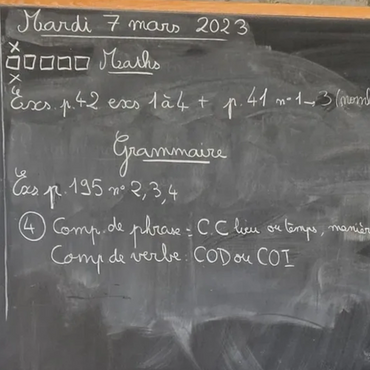 Mardi 7 mars 2023
Maths
Exs. p.42 exs 1 à 4 + p.41 n° 1→3
Grammaire
Exs p.195 n° 2,3,4
④ Comp. de phrase : C.C lieu ou temps, manièr
Comp de verbe : COD ou COI